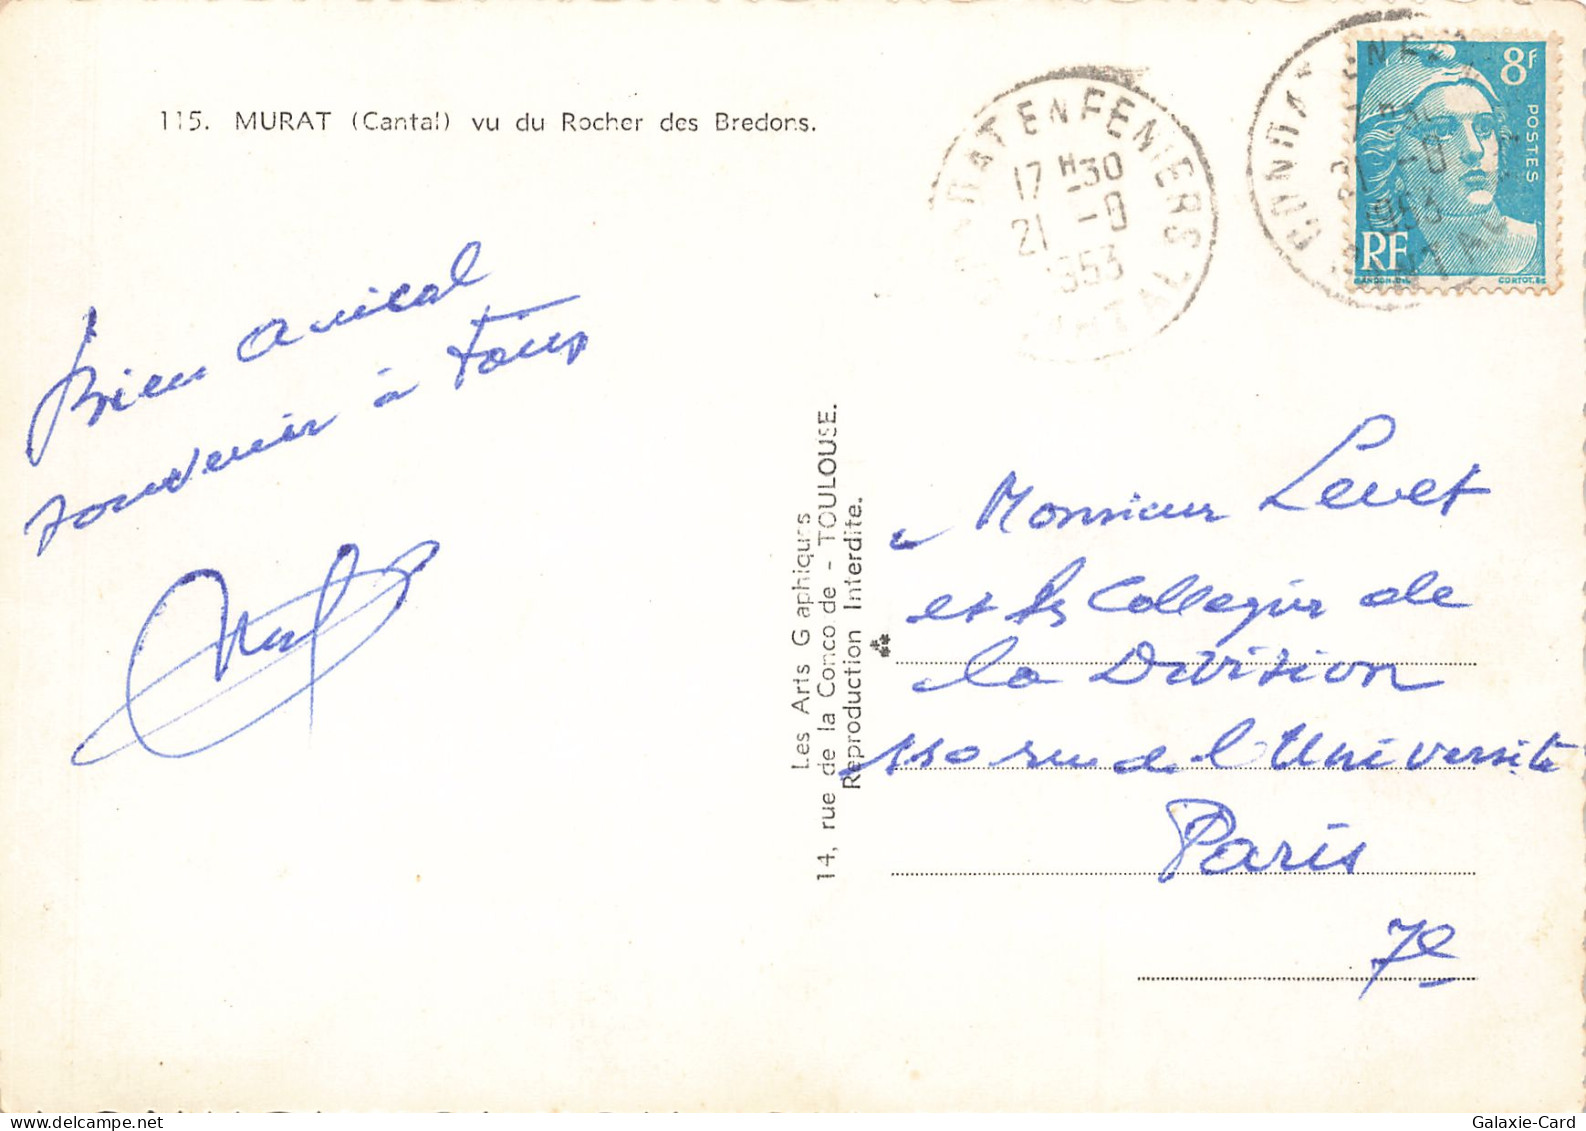 115. MURAT (Cantal) vu du Rocher des Bredons.
CONDAT EN FENIERS
17 H 30
21 -8
1953
CANTAL
8F
POSTES
RF
GANDON.DEL
CORTOT.SC
Bien amical
souvenir à tous
Les Arts Graphiques
14, rue de la Concorde - TOULOUSE.
Reproduction Interdite.
Monsieur Levet
et les Collègues de
la Division
110 rue de l'Université
Paris
7e
Galaxie-Card